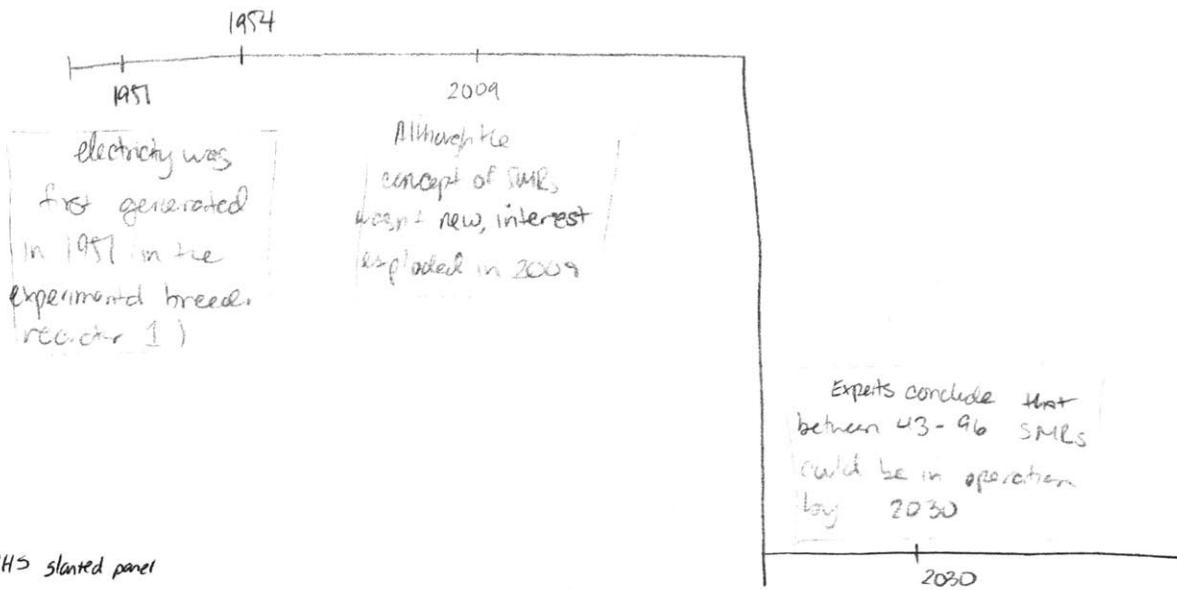 1954
1951
2009
electricity was
first generated
in 1951 in the
experimental breed.
reactor 1)
Although the
concept of SMRs
wasn't new, interest
exploded in 2009
Experts conclude that
between 43-96 SMRs
could be in operation
by 2030
2030
HS slanted panel